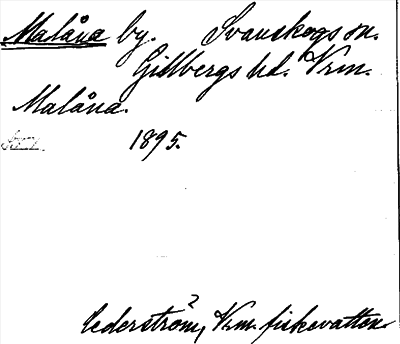 Malåna by. Svanskogs sn.
Gillbergs hd. Vrm.
Malåna.
1895.
Cederström, Vrm. fiskevatten